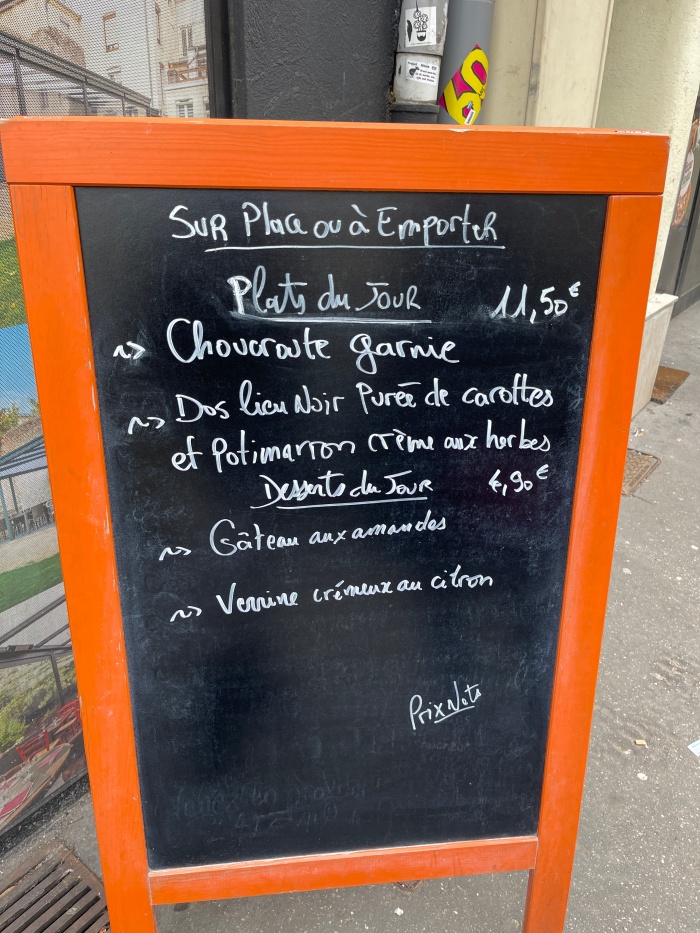 Sur Place ou à Emporter
Plats du Jour 11,50€
~> Choucroute garnie
~> Dos lieu Noir Purée de carottes
et Potimarron crème aux herbes
Desserts du Jour 4,90€
~> Gâteau aux amandes
~> Verrine crémeux au citron
Prix Nets